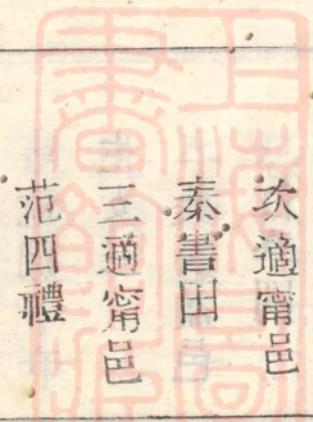 次適甯邑
秦書田
三適甯邑
范四禮